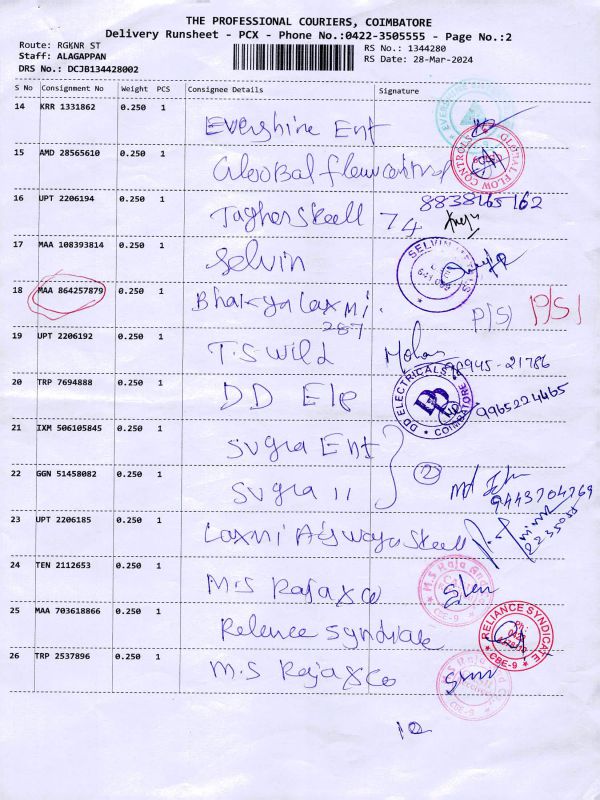 THE PROFESSIONAL COURIERS, COIMBATORE
Delivery Runsheet - PCX - Phone No.:0422-3505555 - Page No.:2
Route: RGKNR ST RS No.: 1344280
Staff: ALAGAPPAN RS Date: 28-Mar-2024
DRS No.: DCJB134428002
S No Consignment No Weight PCS Consignee Details Signature
14 KRR 1331862 0.250 1 Evershine Ent
15 AMD 28565610 0.250 1 Gloobal flow control
GLOBAL FLOW CONTROLS
16 UPT 2206194 0.250 1 Jagher Skell 74 8838165162
17 MAA 108393814 0.250 1 Selvin
SELVIN
18 MAA 864257879 0.250 1 Bhakya Laxmi. P/S/ P/S/
287
19 UPT 2206192 0.250 1 T.S Wild Mohan 98945-21786
20 TRP 7694888 0.250 1 DD Ele 9965224465
DD ELECTRICALS COIMBATORE
21 IXM 506105845 0.250 1 Sugra Ent
22 GGN 51458082 0.250 1 Sugra 11 2 9443704769
23 UPT 2206185 0.250 1 Laxmi Skell
24 TEN 2112653 0.250 1 M.S Raja & Co
M.S Raja CBE-9
25 MAA 703618866 0.250 1 Relence Syndicate
RELIANCE SYNDICATE CBE-9
26 TRP 2537896 0.250 1 M.S Raja & Co
M.S Raja CBE-9